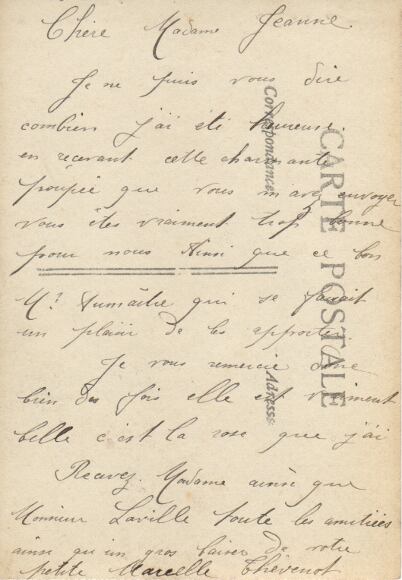 Chère Madame Jeanne.
Je ne puis vous dire
combien j'ai été heureuse
en recevant cette charmante
poupée que vous m'avez envoyer
vous êtes vraiment trop bonne
pour nous Ainsi que ce bon
Mr qui se faisait
un plaisir de les apporter.
Je vous remercie donc
bien des fois elle est vraiment
belle c'est la rose que j'ai
Recevez Madame ainsi que
Monsieur Laville toute les amitiées
ainsi qu'un gros baiser de votre
petite Marcelle Thevenot
CARTE POSTALE
Correspondance
Adresse